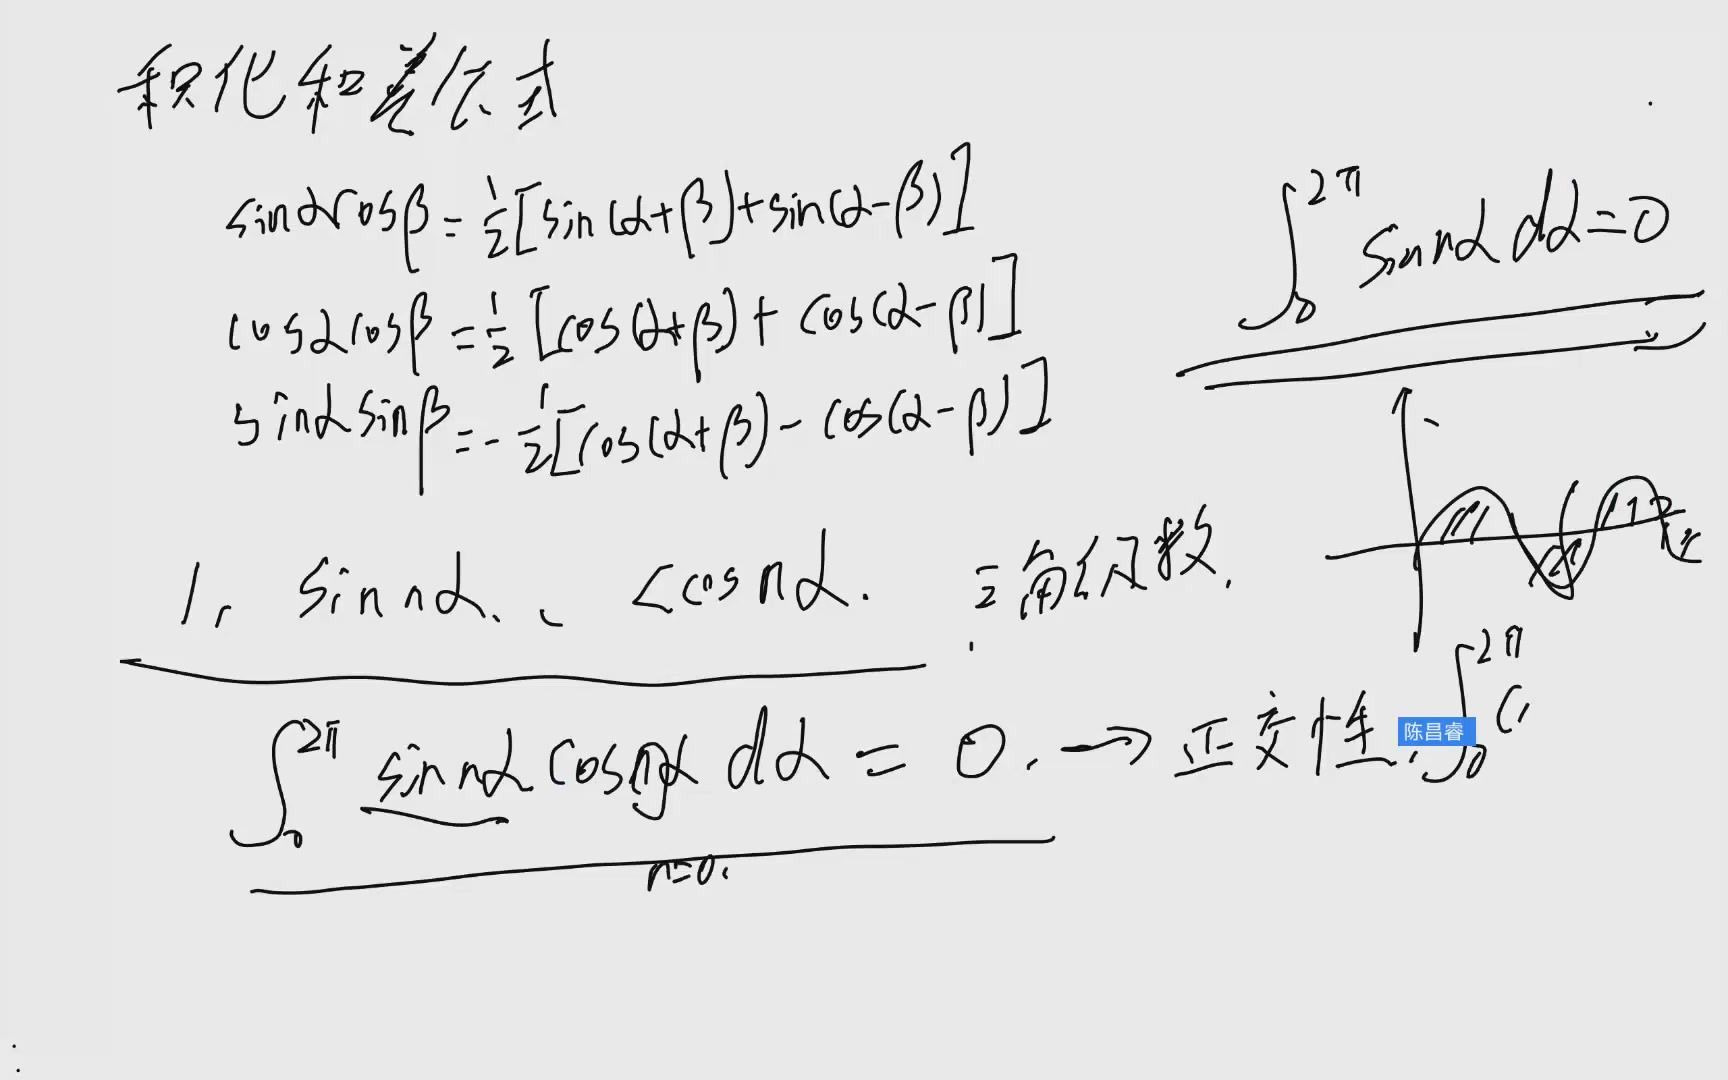 积化和差公式
sinαcosβ=1/2[sin(α+β)+sin(α-β)]
cosαcosβ=1/2[cos(α+β)+cos(α-β)]
sinαsinβ=-1/2[cos(α+β)-cos(α-β)]
∫₀^2π sin nα dα=0
1. sin nα、cos nα. 三角级数.
∫₀^2π sin nα cos nα dα = 0. → 正交性. ∫₀^2π
陈昌睿
n=0.